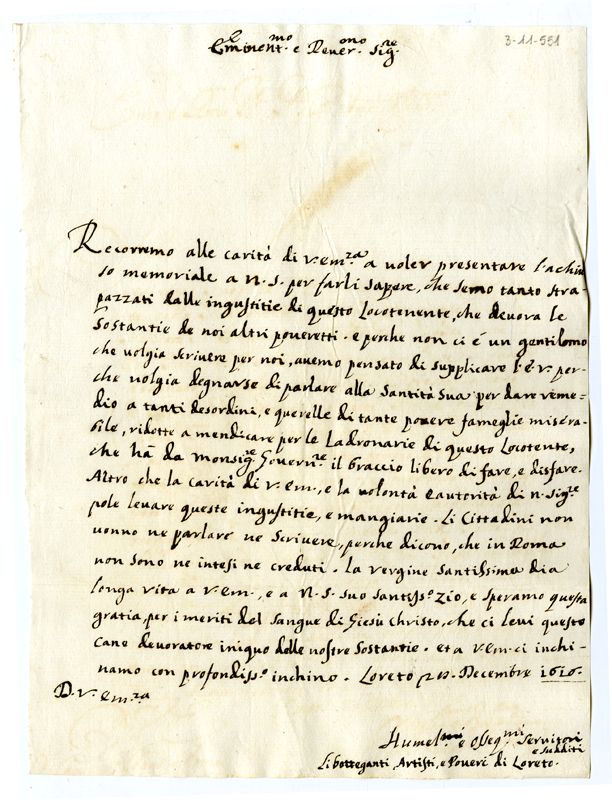 3-11-551
Eminent.mo e Rever.mo Sig.re
Recorremo alle carità di v. em.za a voler presentare l'achiu
so memoriale a N. S. per farli sapere, che semo tanto stra-
pazzati dalle ingiustitie di questo Locotenente, che devora le
Sostantie de noi altri poveretti. e perche non ci é un gentilomo
che volgia scrivere per noi, avemo pensato di supplicare l'E. V. per-
che volgia degnarse di parlare alla Santità Sua per dare reme-
dio a tanti desordini, e querelle di tante povere fameglie misera-
bile, ridotte a mendicare per le Ladronarie di questo Locotente,
che hà da Monsig.re Govern.re il braccio libero di fare, e disfare.
Altro che la carità di V. em., e la volontà e autorità di N. Sig.re
pole levare queste ingiustitie, e mangiarie. Li Cittadini non
vonno ne parlare ne Scrivere, perche dicono, che in Roma
non sono ne intesi ne creduti. La vergine Santissima dia
longa vita a V. em., e a N. S. suo santiss.o Zio, e speramo questa
gratia, per i meriti del sangue di Giesù Christo, che ci levi questo
Cane devoratore iniquo delle nostre Sostantie. et a V. em. ci inchi-
namo con profondiss.o inchino. Loreto Decembre 1616.
D. V. em.za
Humel.mi e Osseq.mi Servitori
e Sudditi
Li botteganti, Artisti, e Poveri di Loreto.